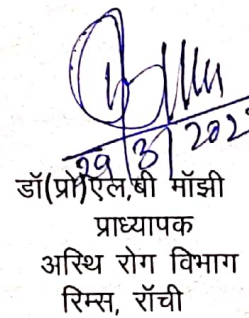 29/3/202
डॉ(प्रो)एल,बी माँझी
प्राध्यापक
अस्थि रोग विभाग
रिम्स, राँची